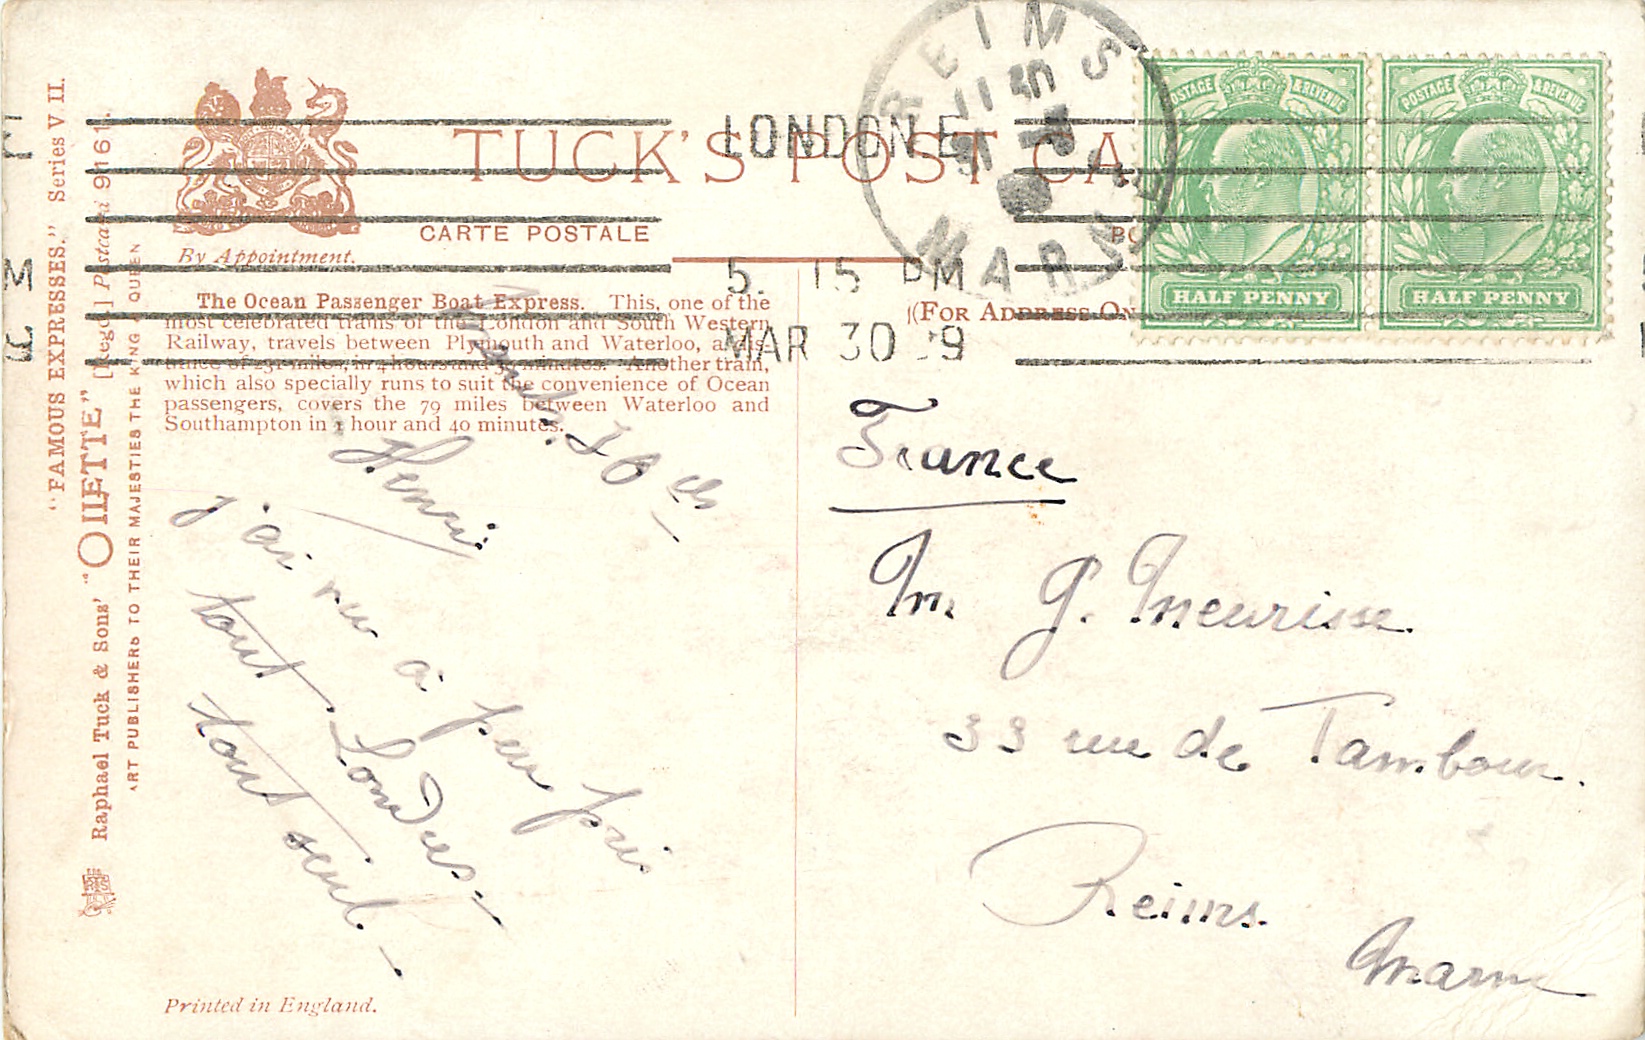 "FAMOUS EXPRESSES." Series VII.
"OILETTE" [Regd.] Postcard 9161.
Raphael Tuck & Sons'
ART PUBLISHERS TO THEIR MAJESTIES THE KING AND QUEEN
By Appointment.
TUCK'S POST CA
CARTE POSTALE
LONDON E
5. 15 PM
MAR 30 9
REIMS
MARNE
POSTAGE & REVENUE
HALF PENNY
POSTAGE & REVENUE
HALF PENNY
(FOR ADDRESS ON
The Ocean Passenger Boat Express. This, one of the
most celebrated trains of the London and South Western
Railway, travels between Plymouth and Waterloo, a dis-
tance of 231 miles, in 4 hours and minutes. Another train,
which also specially runs to suit the convenience of Ocean
passengers, covers the 79 miles between Waterloo and
Southampton in 1 hour and 40 minutes.
30th
Henri
j'ai vu à peu près
tout Londres
tout seul
France
M. G. Meurisse
33 rue de Tambour.
Reims.
Marne
Printed in England.